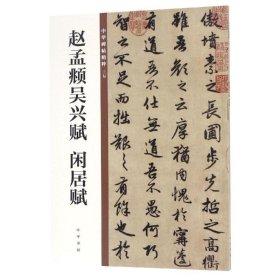 赵孟頫吴兴赋 闲居赋
中华碑帖精粹
中华书局
傲墳素之長圃步先哲之高衢
雖吾顏之云厚猶內愧於甯蘧
有道吾不仕無道吾不愚何巧
智之不足而拙艱之有餘也於